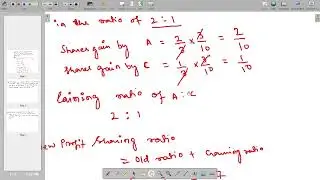 in the ratio of 2:1
Shares gain by A = 2/3 × 3/10 = 2/10
Shares gain by C = 1/3 × 3/10 = 1/10
Gaining ratio of A:C
2 : 1
New Profit Sharing ratio
= Old ratio + Gaining ratio